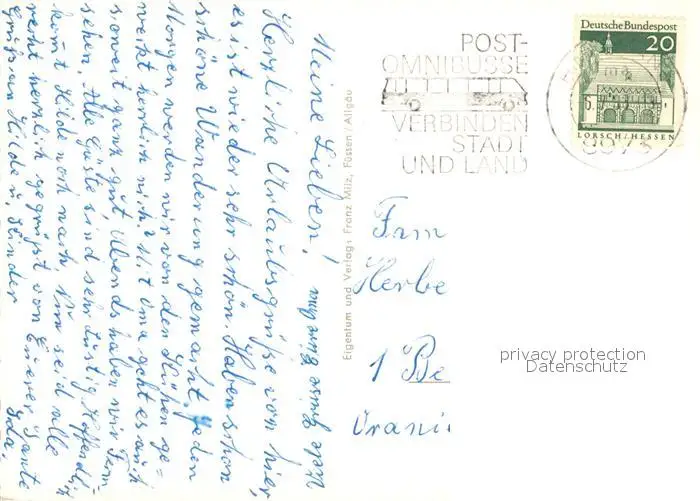 Meine Lieben!
Herzliche Urlaubsgrüße von hier,
es ist wieder sehr schön. Haben schon
schöne Wanderung gemacht. Jeden
Morgen werden wir von den Kühen ge=
weckt herrlich nich? Mit Oma geht es auch
soweit ganz gut Abends haben wir Fern=
sehen. Alle Gäste sind sehr lustig, Hoffendlig
komt Hilde noch nach. Nun seid alle
recht herzlich gegrüßt von Eurer Tante
Grüß an Hilde u. Kinder
Ida.
Viele Grüsse Eure Oma
Eigentum und Verlag: Franz Milz, Füssen/Allgäu
POST-
OMNIBUSSE
VERBINDEN
STADT
UND LAND
Deutsche Bundespost
20
LORSCH/HESSEN
Fam
Herbe
1 Be
Orani
privacy protection
Datenschutz